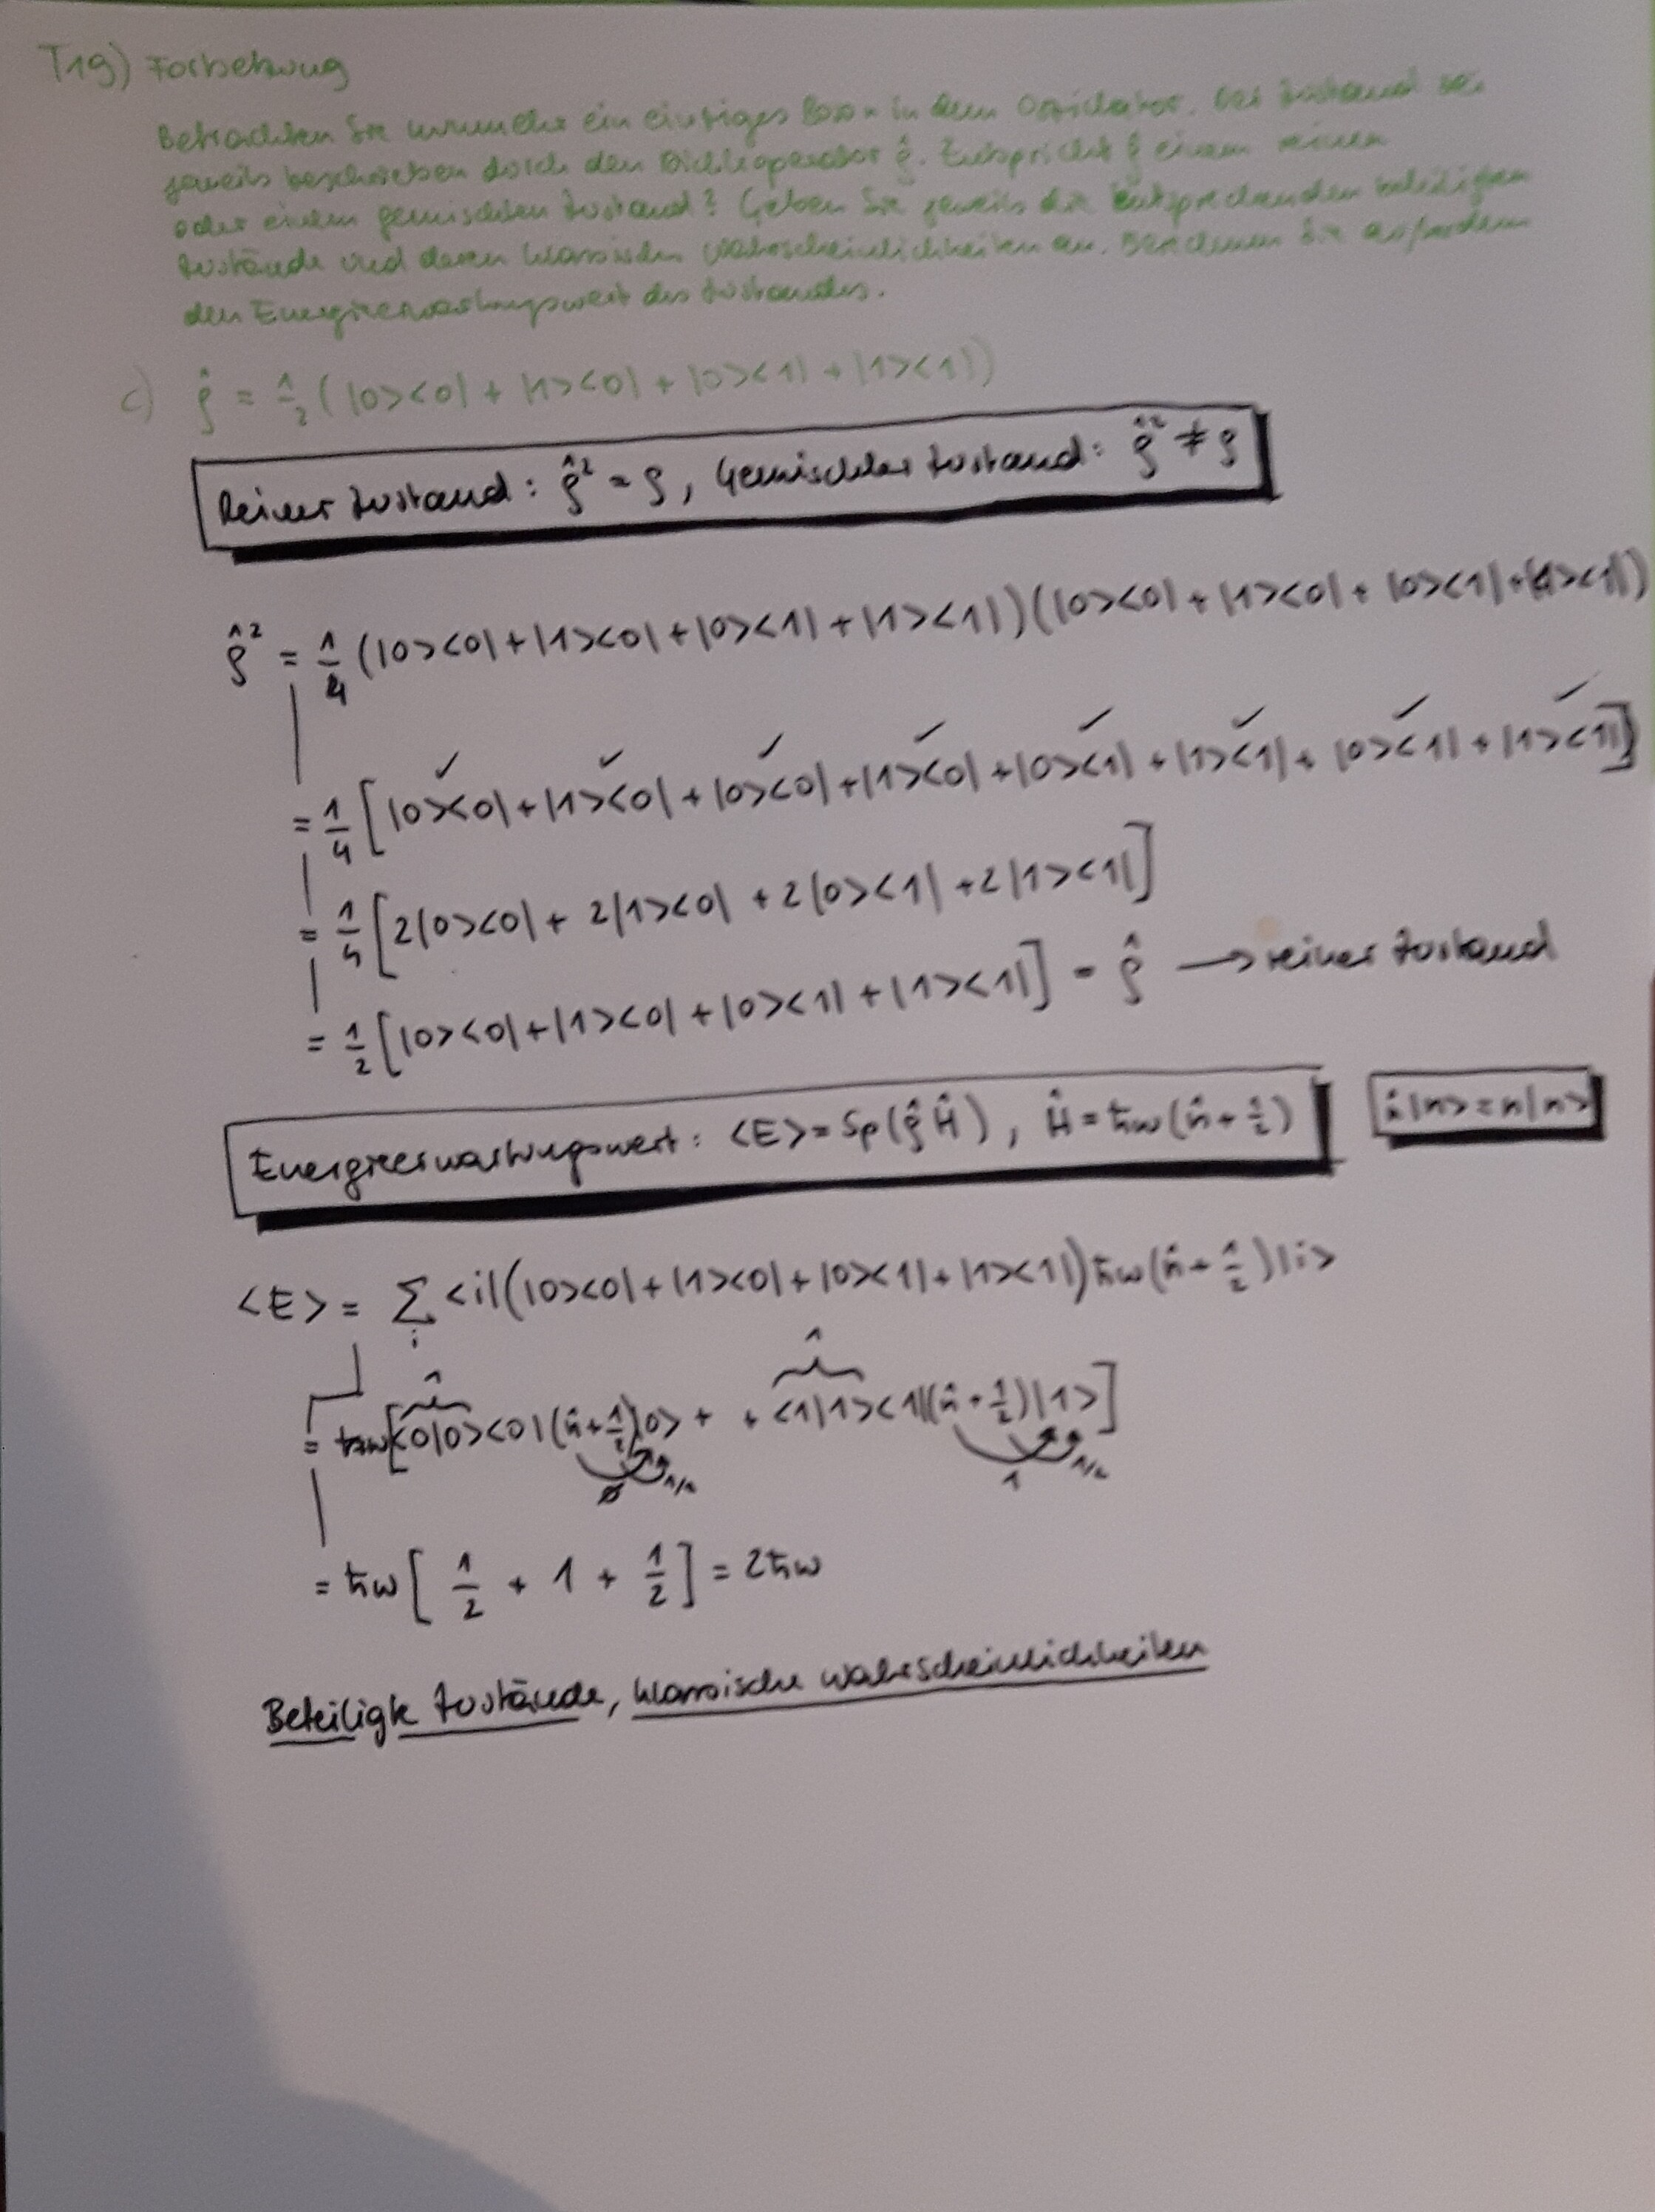 T19) Fortsetzung
Betrachten Sie nunmehr ein einziges Boson in dem Oszillator. Der Zustand sei
jeweils beschrieben durch den Dichteoperator ρ̂. Entspricht ρ̂ einem reinen
oder einem gemischten Zustand? Geben Sie jeweils die entsprechenden beteiligten
Zustände und deren klassischen Wahrscheinlichkeiten an. Berechnen Sie außerdem
den Energieerwartungswert des Zustandes.
c) ρ̂ = 1/2 (|0><0| + |1><0| + |0><1| + |1><1|)
Reiner Zustand: ρ̂² = ρ, Gemischter Zustand: ρ̂² ≠ ρ
ρ̂² = 1/4 (|0><0| + |1><0| + |0><1| + |1><1|)(|0><0| + |1><0| + |0><1| + |1><1|)
✓ ✓ ✓ ✓ ✓ ✓ ✓ ✓
= 1/4 [|0><0| + |1><0| + |0><0| + |1><0| + |0><1| + |1><1| + |0><1| + |1><1|]
= 1/4 [2|0><0| + 2|1><0| + 2|0><1| + 2|1><1|]
= 1/2 [|0><0| + |1><0| + |0><1| + |1><1|] = ρ̂ → reiner Zustand
Energieerwartungswert: <E> = Sp(ρ̂Ĥ), Ĥ = ħω(n̂ + 1/2) n̂|n> = n|n>
<E> = Σ_i <i|(|0><0| + |1><0| + |0><1| + |1><1|)ħω(n̂ + 1/2)|i>
1 1
= ħω[<0|0><0|(n̂ + 1/2)|0> + + <1|1><1|(n̂ + 1/2)|1>]
∅ 1/2 1 1/2
= ħω[1/2 + 1 + 1/2] = 2ħω
Beteiligte Zustände, klassische Wahrscheinlichkeiten